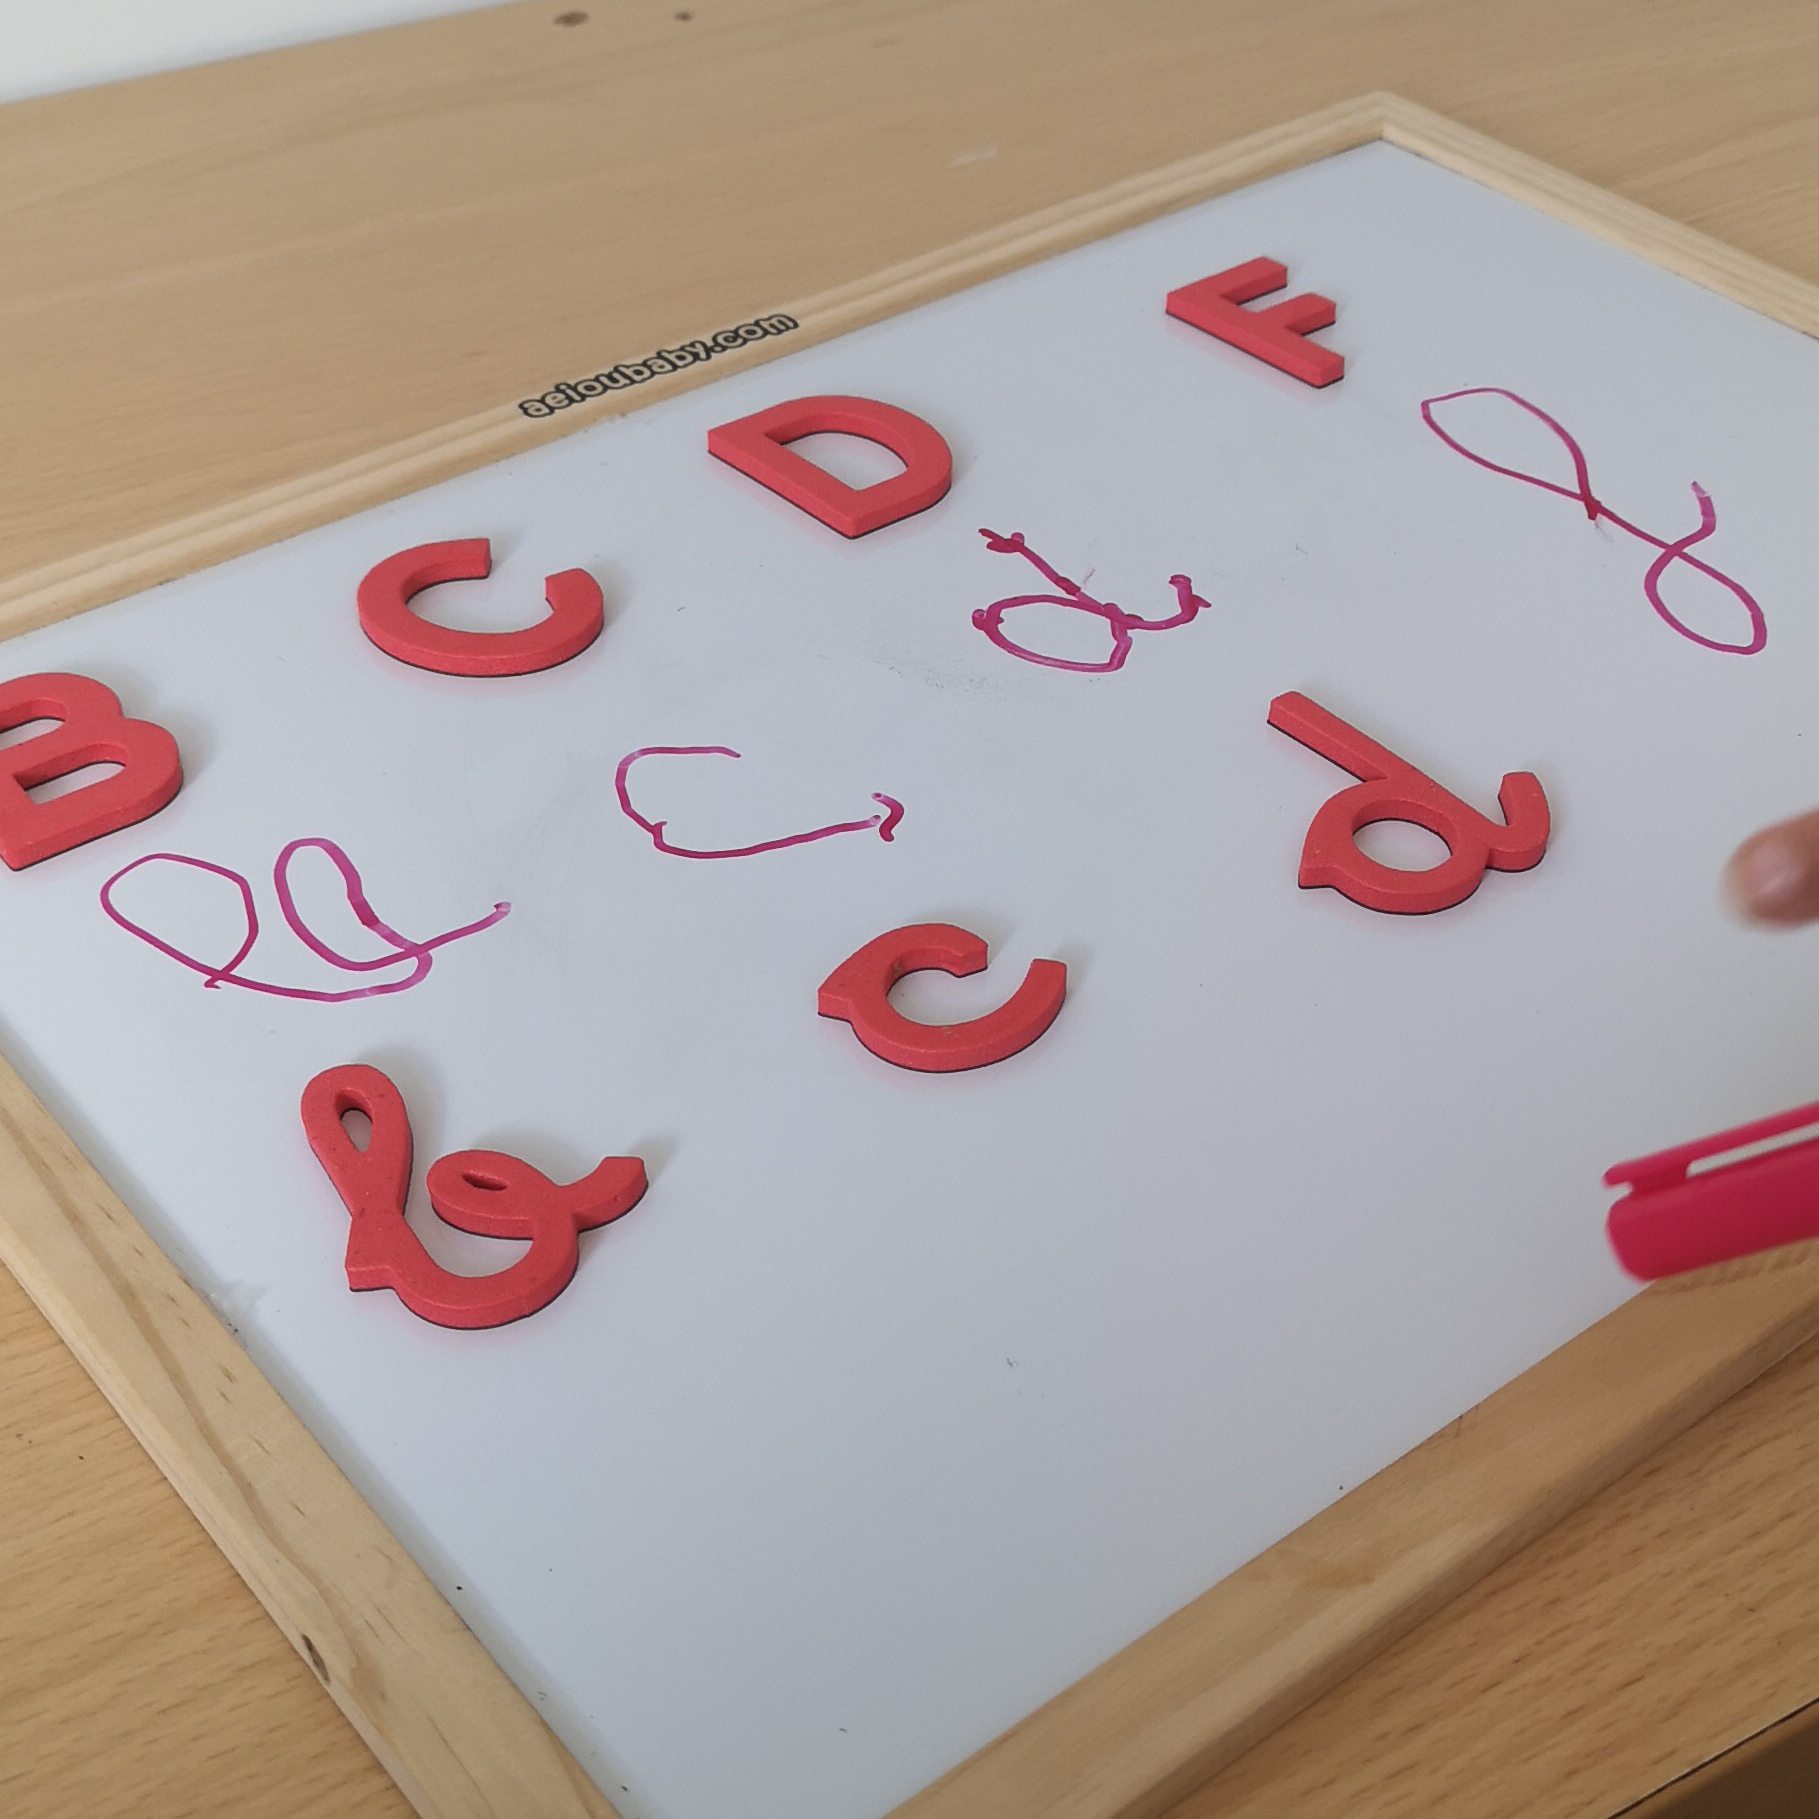 aeioubaby.com
B C D F
b c d f
b c d